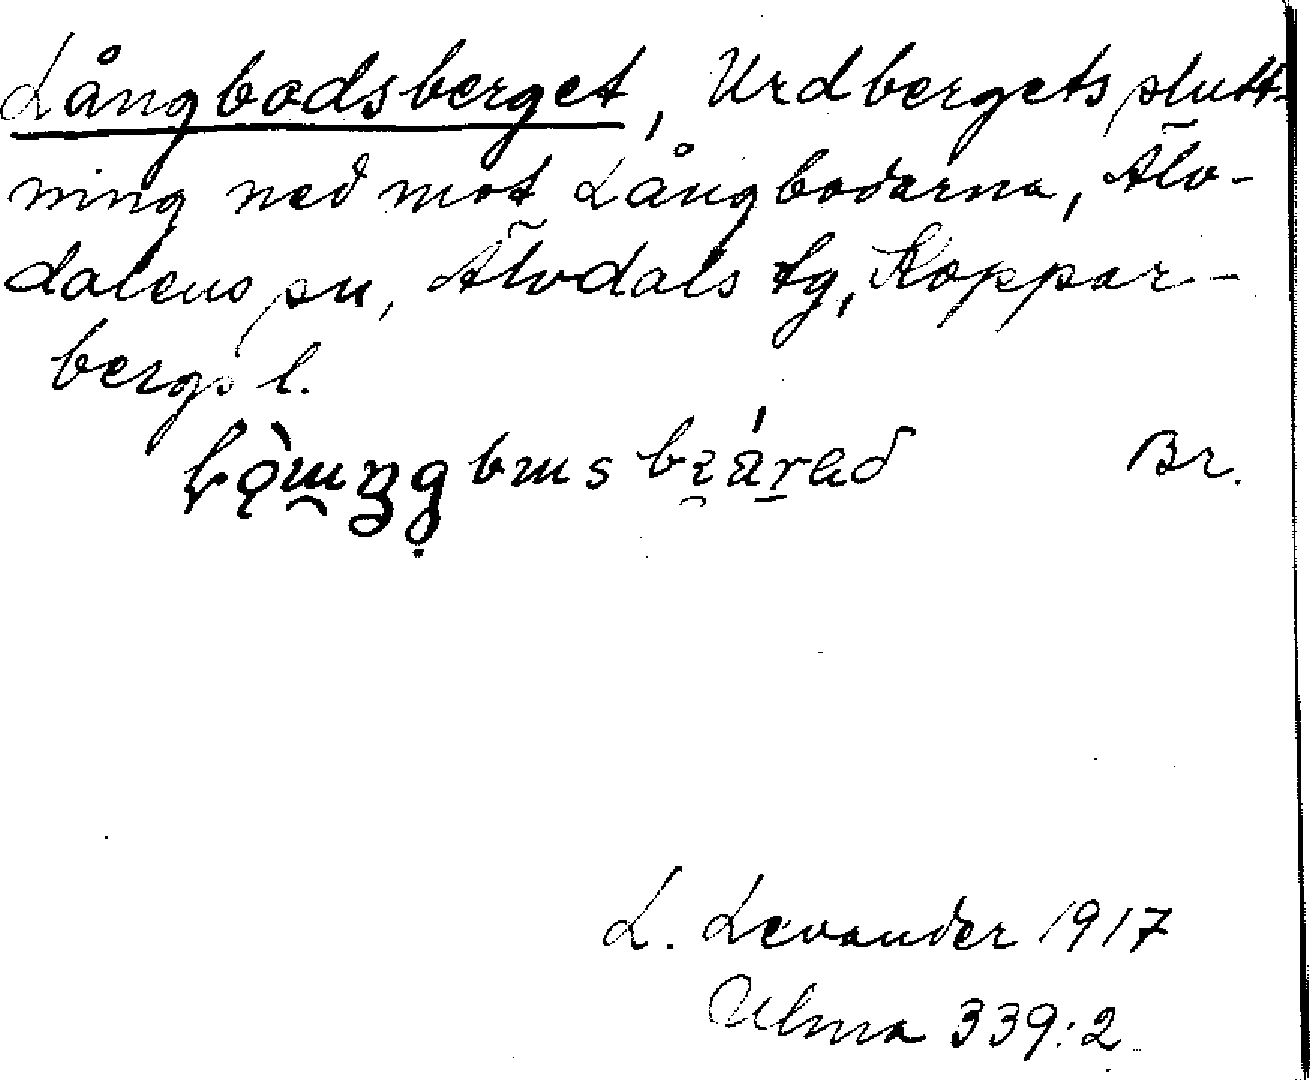 Långbodsberget, Urdbergets slutt-
ning ned mot Långbodarna, Älv-
dalens sn, Älvdals tg, Koppar-
bergs l.
Br.
L. Levander 1917
Ulma 339:2